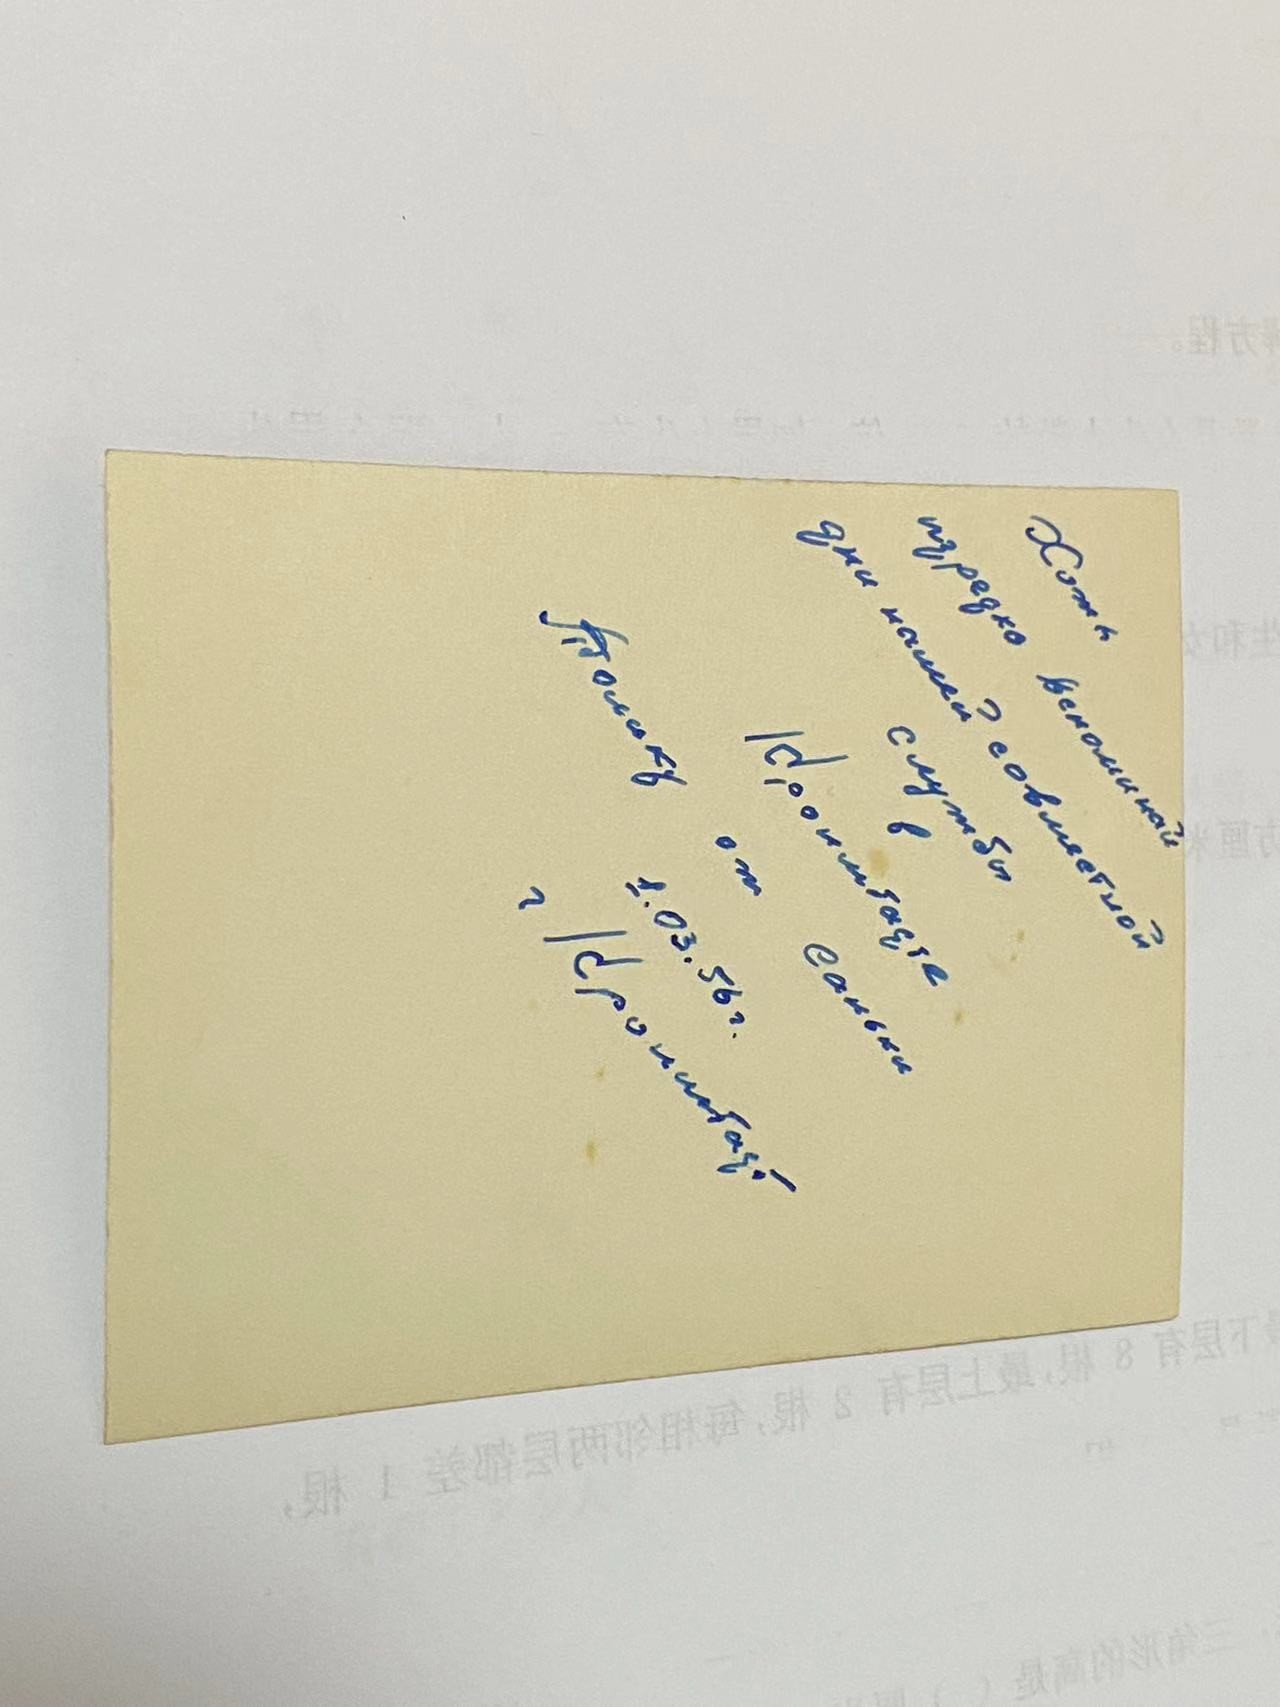 Хоть
изредко вспоминай
дни нашей совместной
службы
в
Кронштадте
Толику от Саньки
1.03.56г.
г Кронштадт
方程。
生和女
方厘米
下层有 8 根,最上层有 2 根,每相邻两层都差 1 根,
三角形的高是 (  )